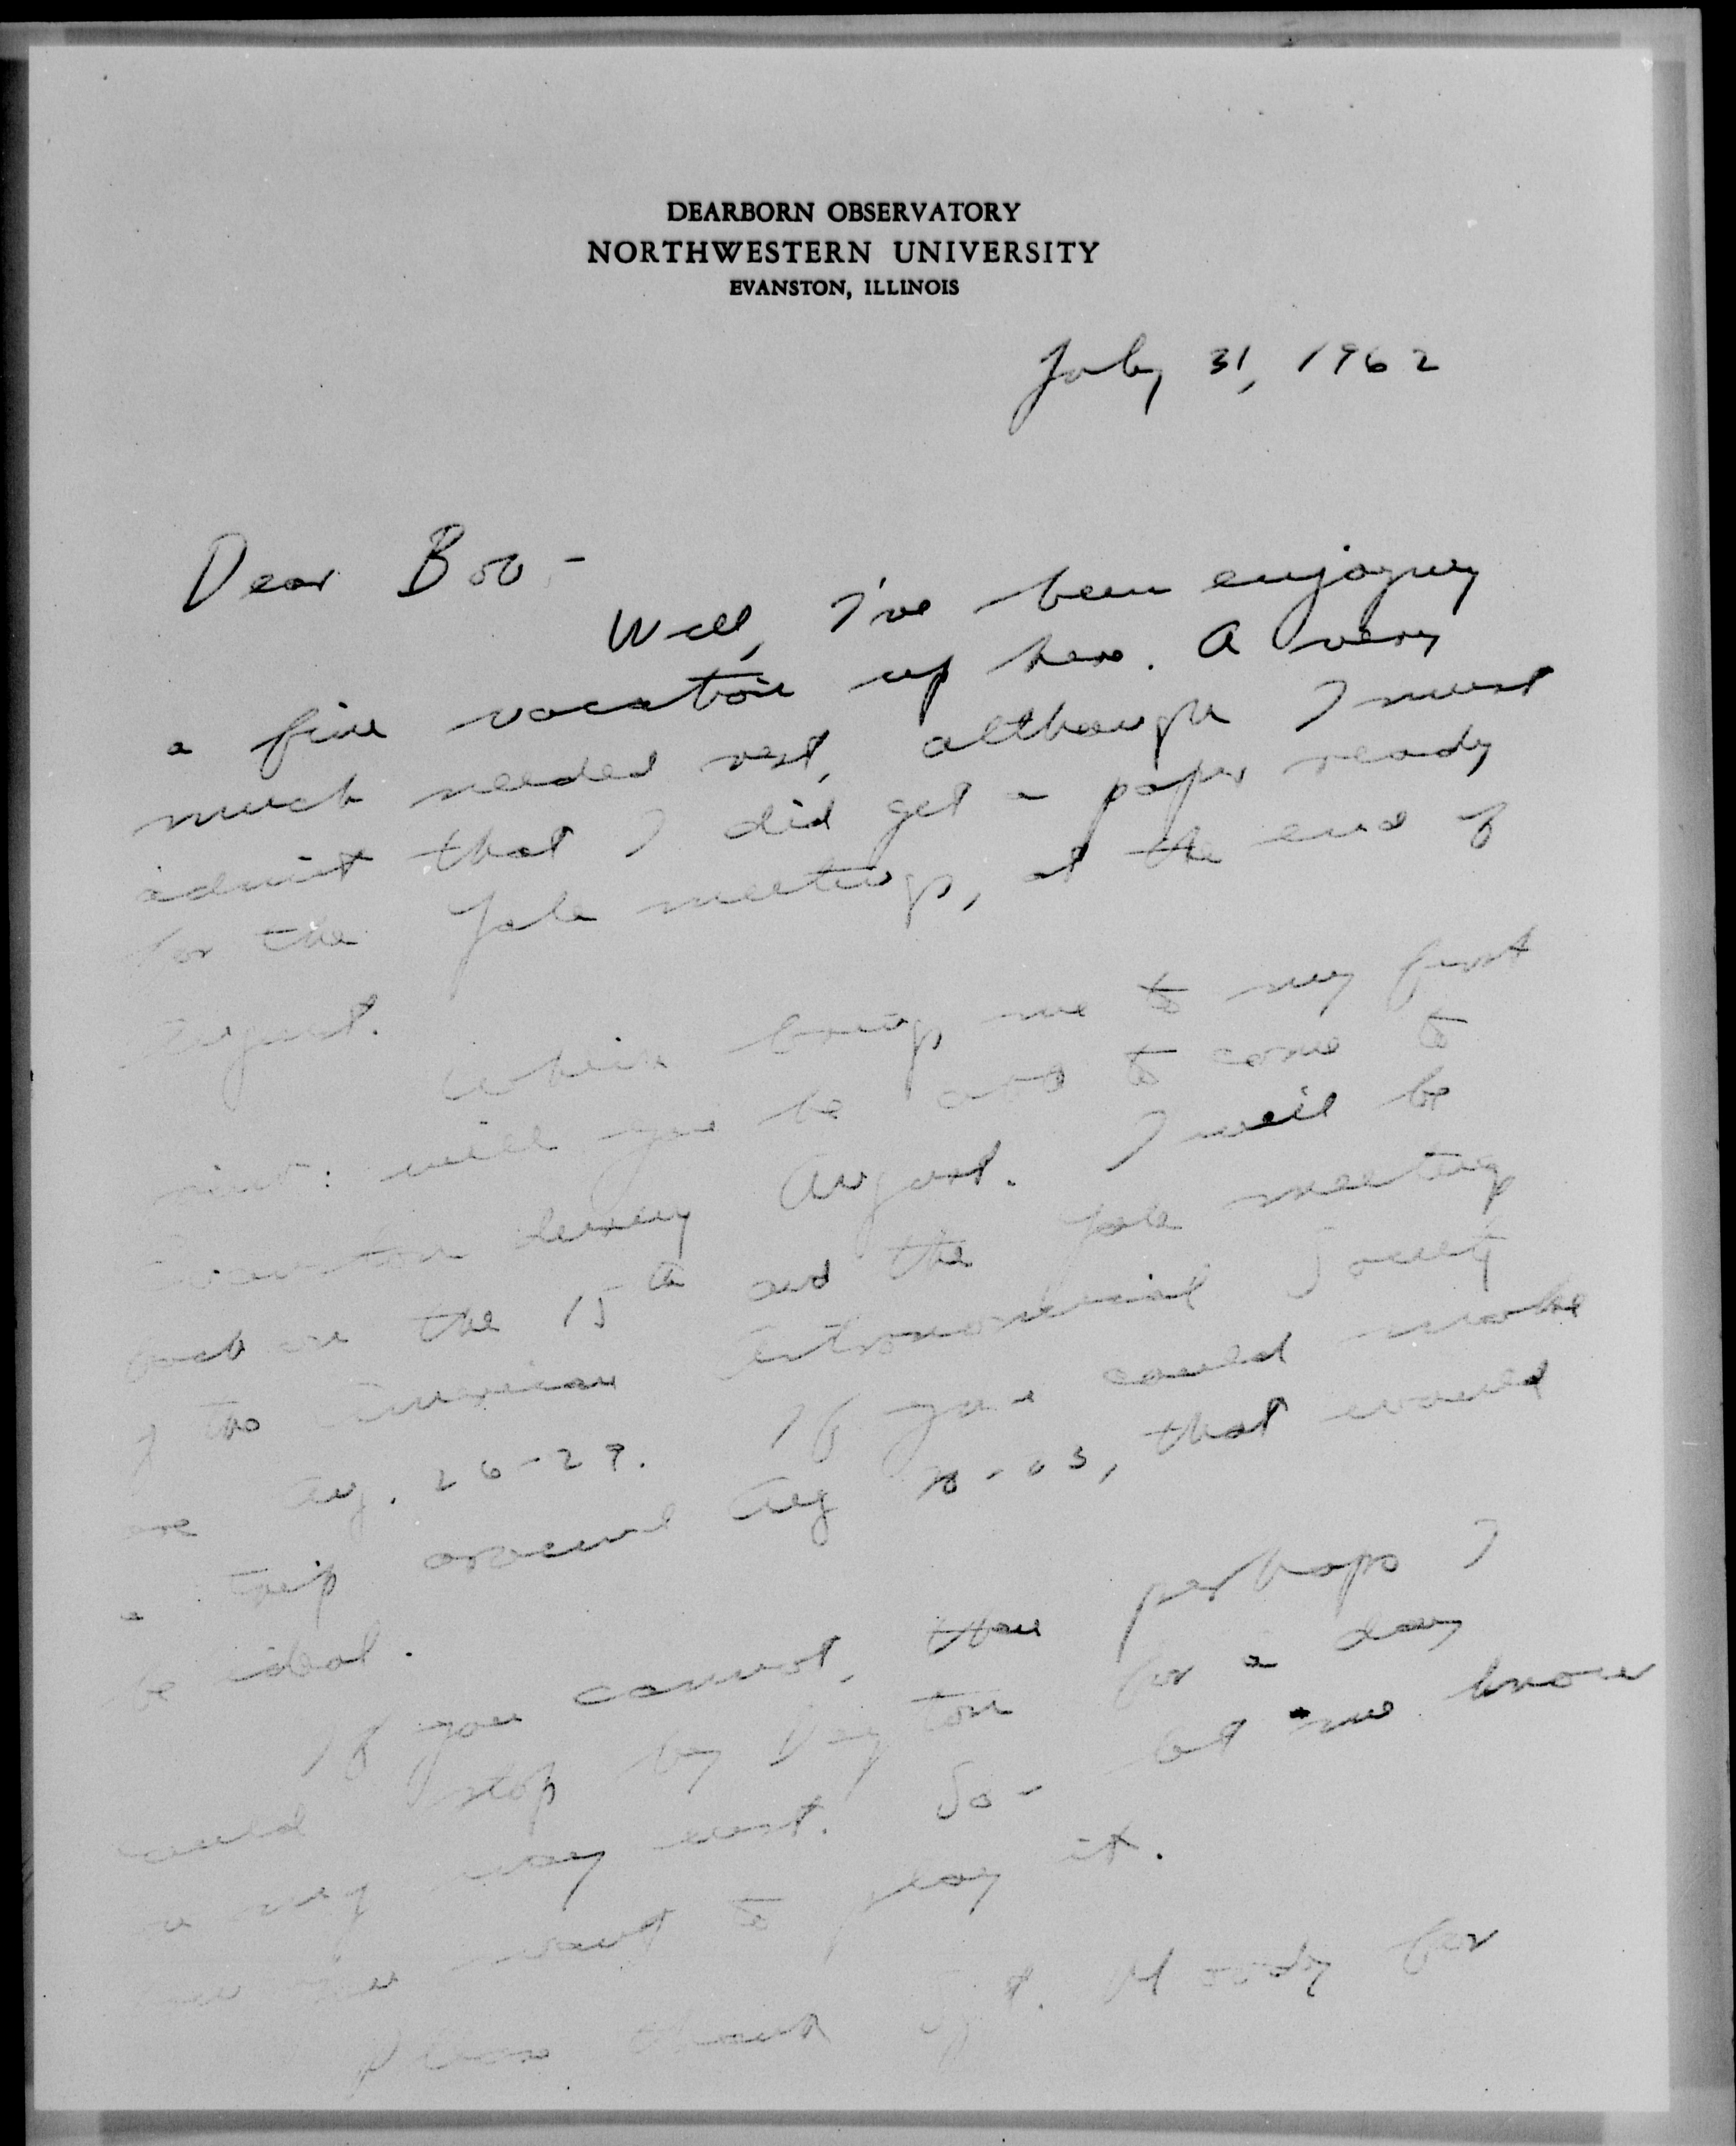 DEARBORN OBSERVATORY
NORTHWESTERN UNIVERSITY
EVANSTON, ILLINOIS
July 31, 1962
Dear Bob-
Well, I've been enjoying
a fine vacation up here. A very
much needed rest, although I must
admit that I did get a paper ready
for the Yale meetings, at the end of
August.
Which brings me to my first
point: will you be able to come to
Evanston during August. I will be
back on the 15th and the Yale meetings
of the American Astronomical Society
are Aug. 26-29. If you could make
a trip around Aug 20-23, that would
be ideal.
If you cannot, then perhaps I
could stop by Dayton for a day
on my way east. So- let me know
how you want to play it.
Please thank Sgt. Moody for